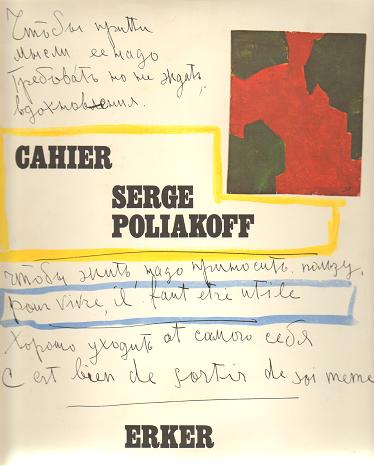 Чтобы прити
мысли ее надо
требовать но не ждать,
вдохновения.
CAHIER
SERGE
POLIAKOFF
чтобы жить надо приносить пользу.
pour vivre, il faut etre utile
Хорошо уходить от самого себя
C est bien de sortir de soi meme
ERKER